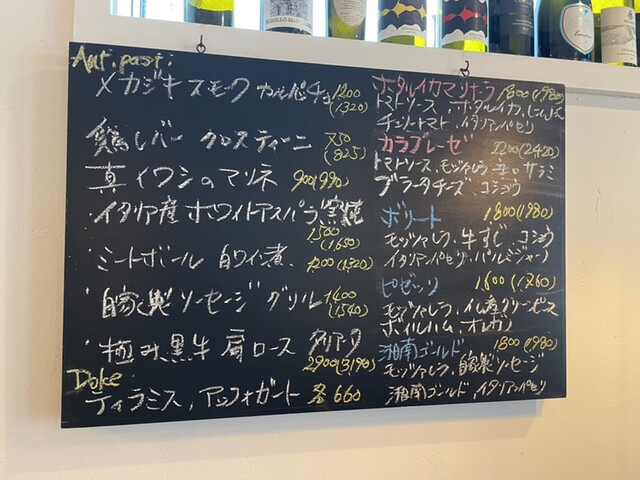 Antipasti
メカジキスモーク カルパチョ 1200
(1320)
鶏レバー クロスティーニ 750
(825)
真イワシのマリネ 900(990)
イタリア産ホワイトアスパラ窯焼
1500
(1650)
ミートボール 白ワイン煮 1200(1320)
自家製ソーセージグリル 1400
(1540)
極み黒牛肩ロース タリアータ
2900(3190)
Dolce
ティラミス、アッフォガート 各660
ホタルイカマリナーラ 1800(1980)
トマトソース、ホタルイカ、にんにく
チェリートマト、イタリアンパセリ
カラブレーゼ 2200(2420)
トマトソース、モッツァレラ、辛口サラミ
ブラータチーズ コショウ
ボリート 1800(1980)
モッツァレラ、牛すじ、コショウ
イタリアンパセリ、パルミジャーノ
ピゼッリ 1600(1760)
モッツァレラ、仏産グリーンピース
ボイルハム、オレガノ
湘南ゴールド 1800(1980)
モッツァレラ、自家製ソーセージ
湘南ゴールド、イタリアンパセリ